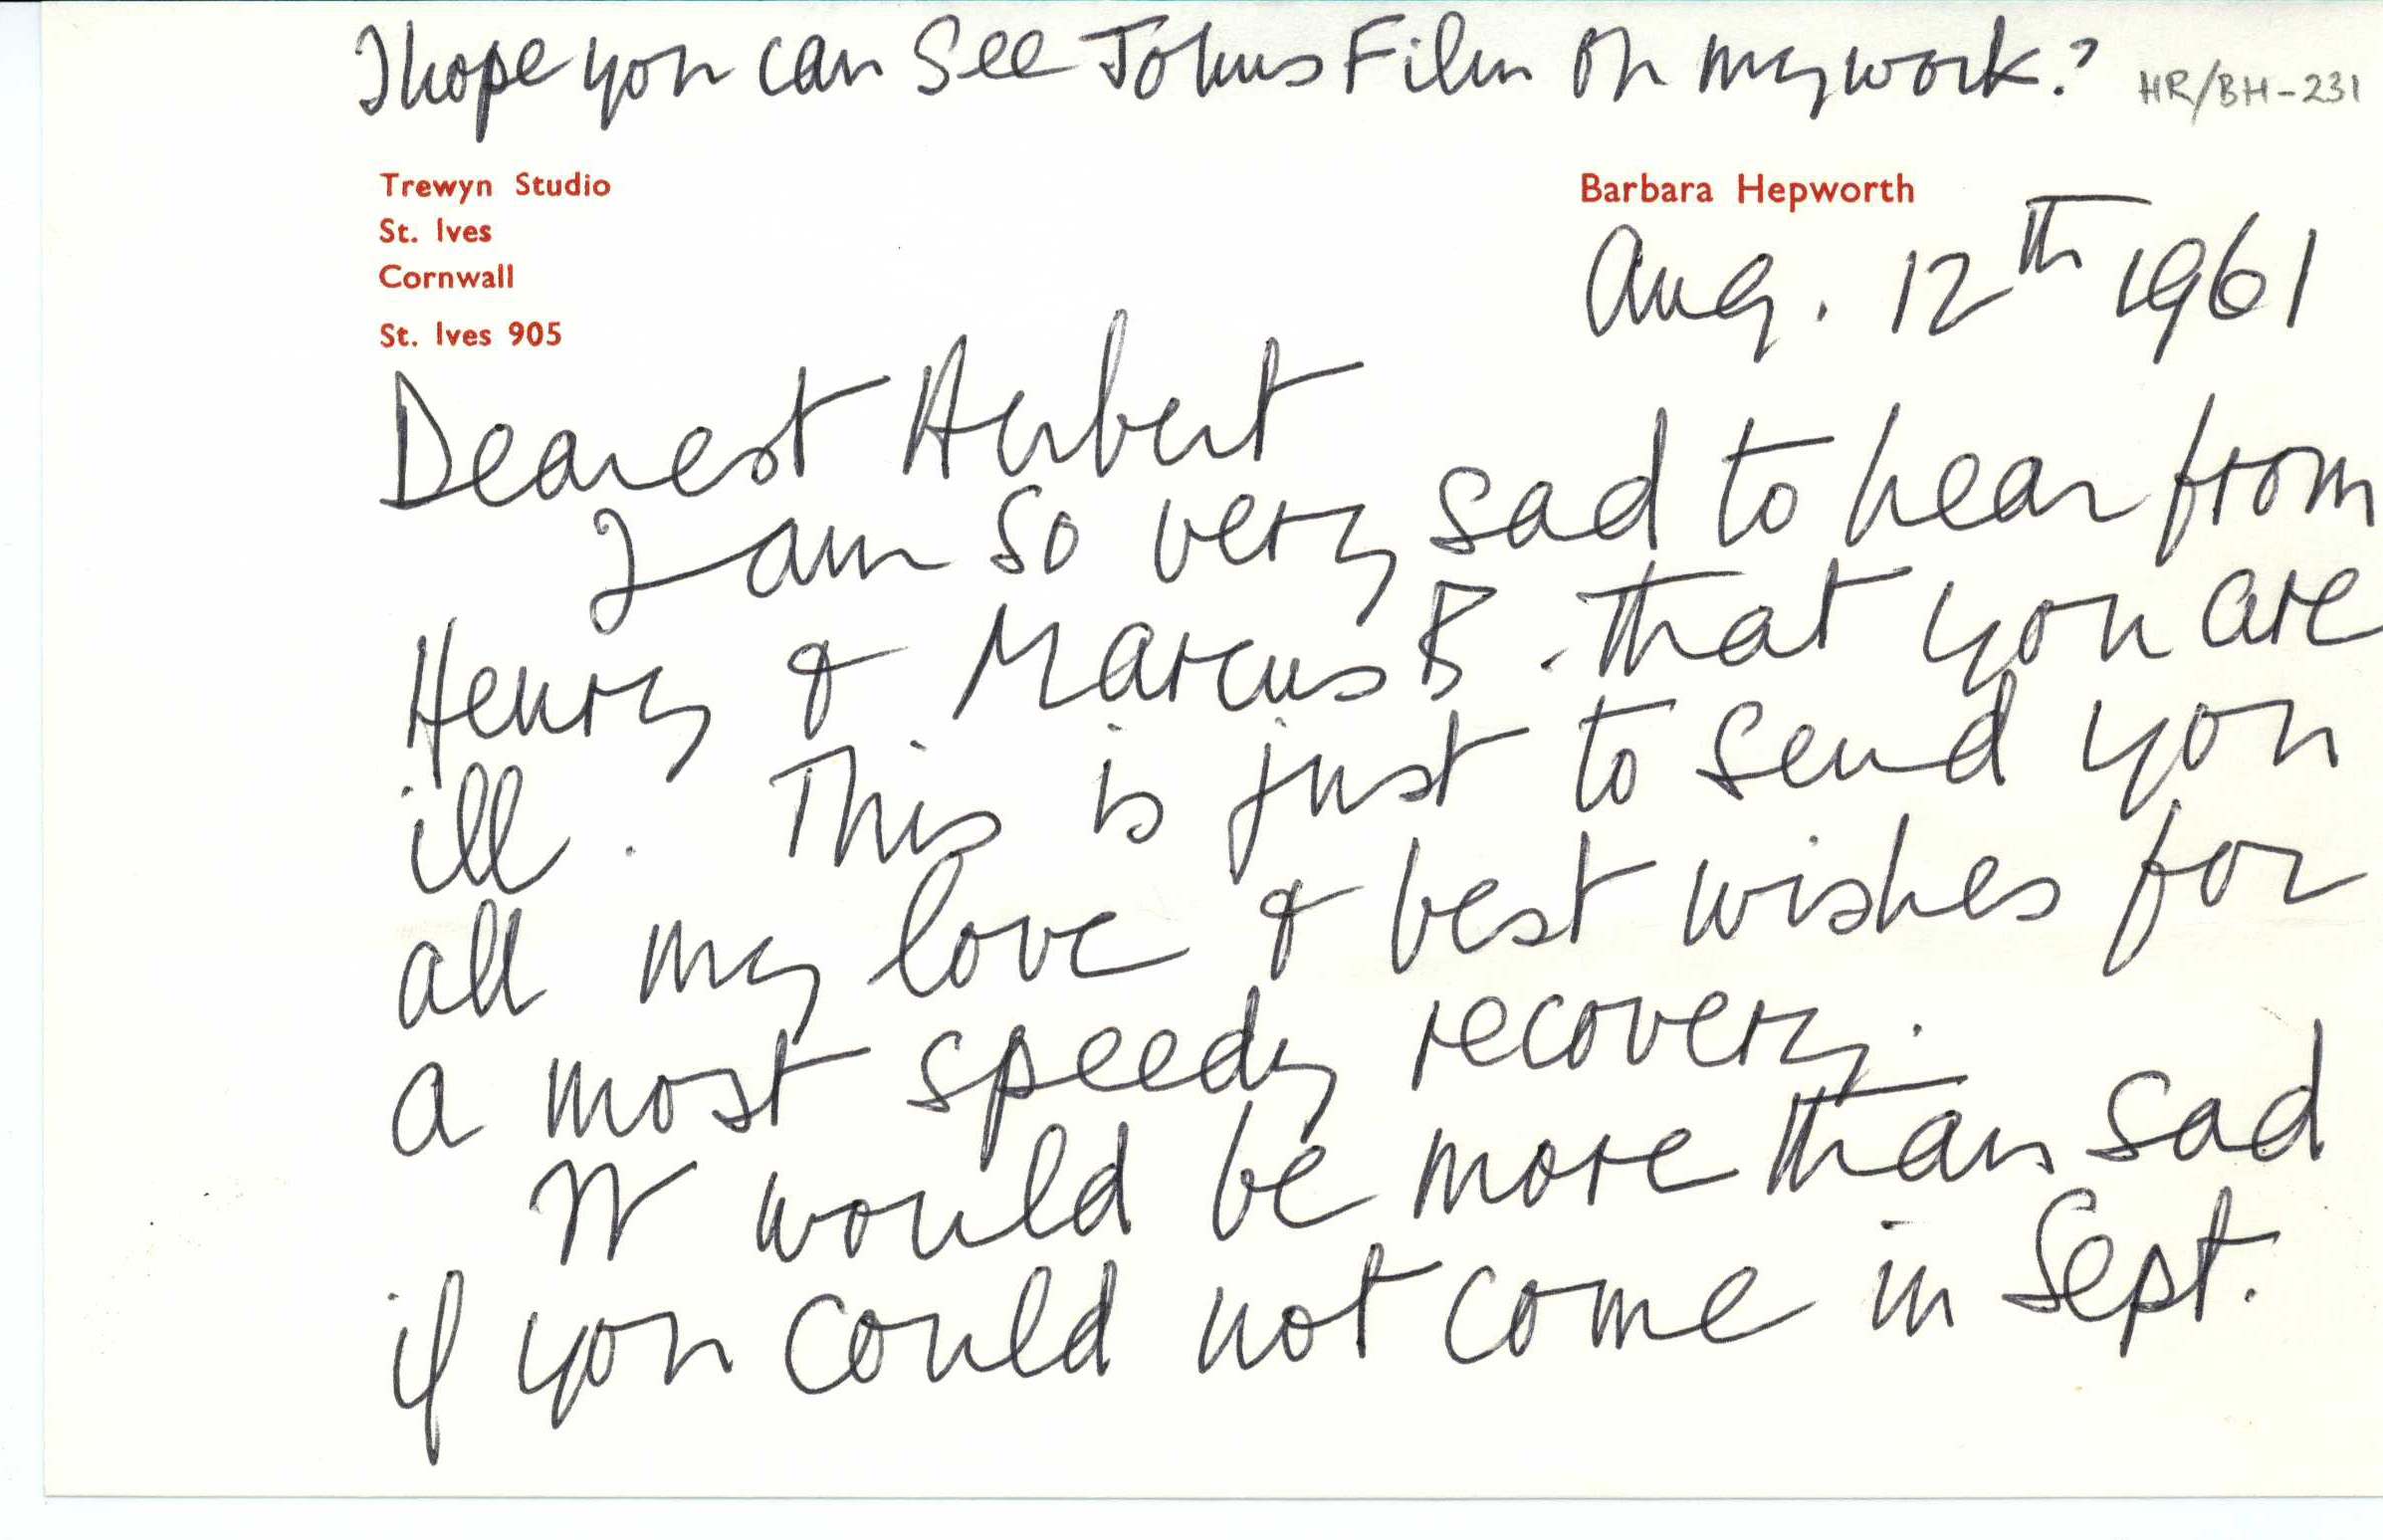 I hope you can see Johns Film on my work? HR/BH-231
Trewyn Studio
St. Ives
Cornwall
St. Ives 905
Barbara Hepworth
Aug. 12th 1961
Dearest Herbert
I am so very sad to hear from
Henry & Marcus B. that you are
ill. This is just to send you
all my love & best wishes for
a most speedy recovery.
It would be more than sad
if you could not come in Sept.